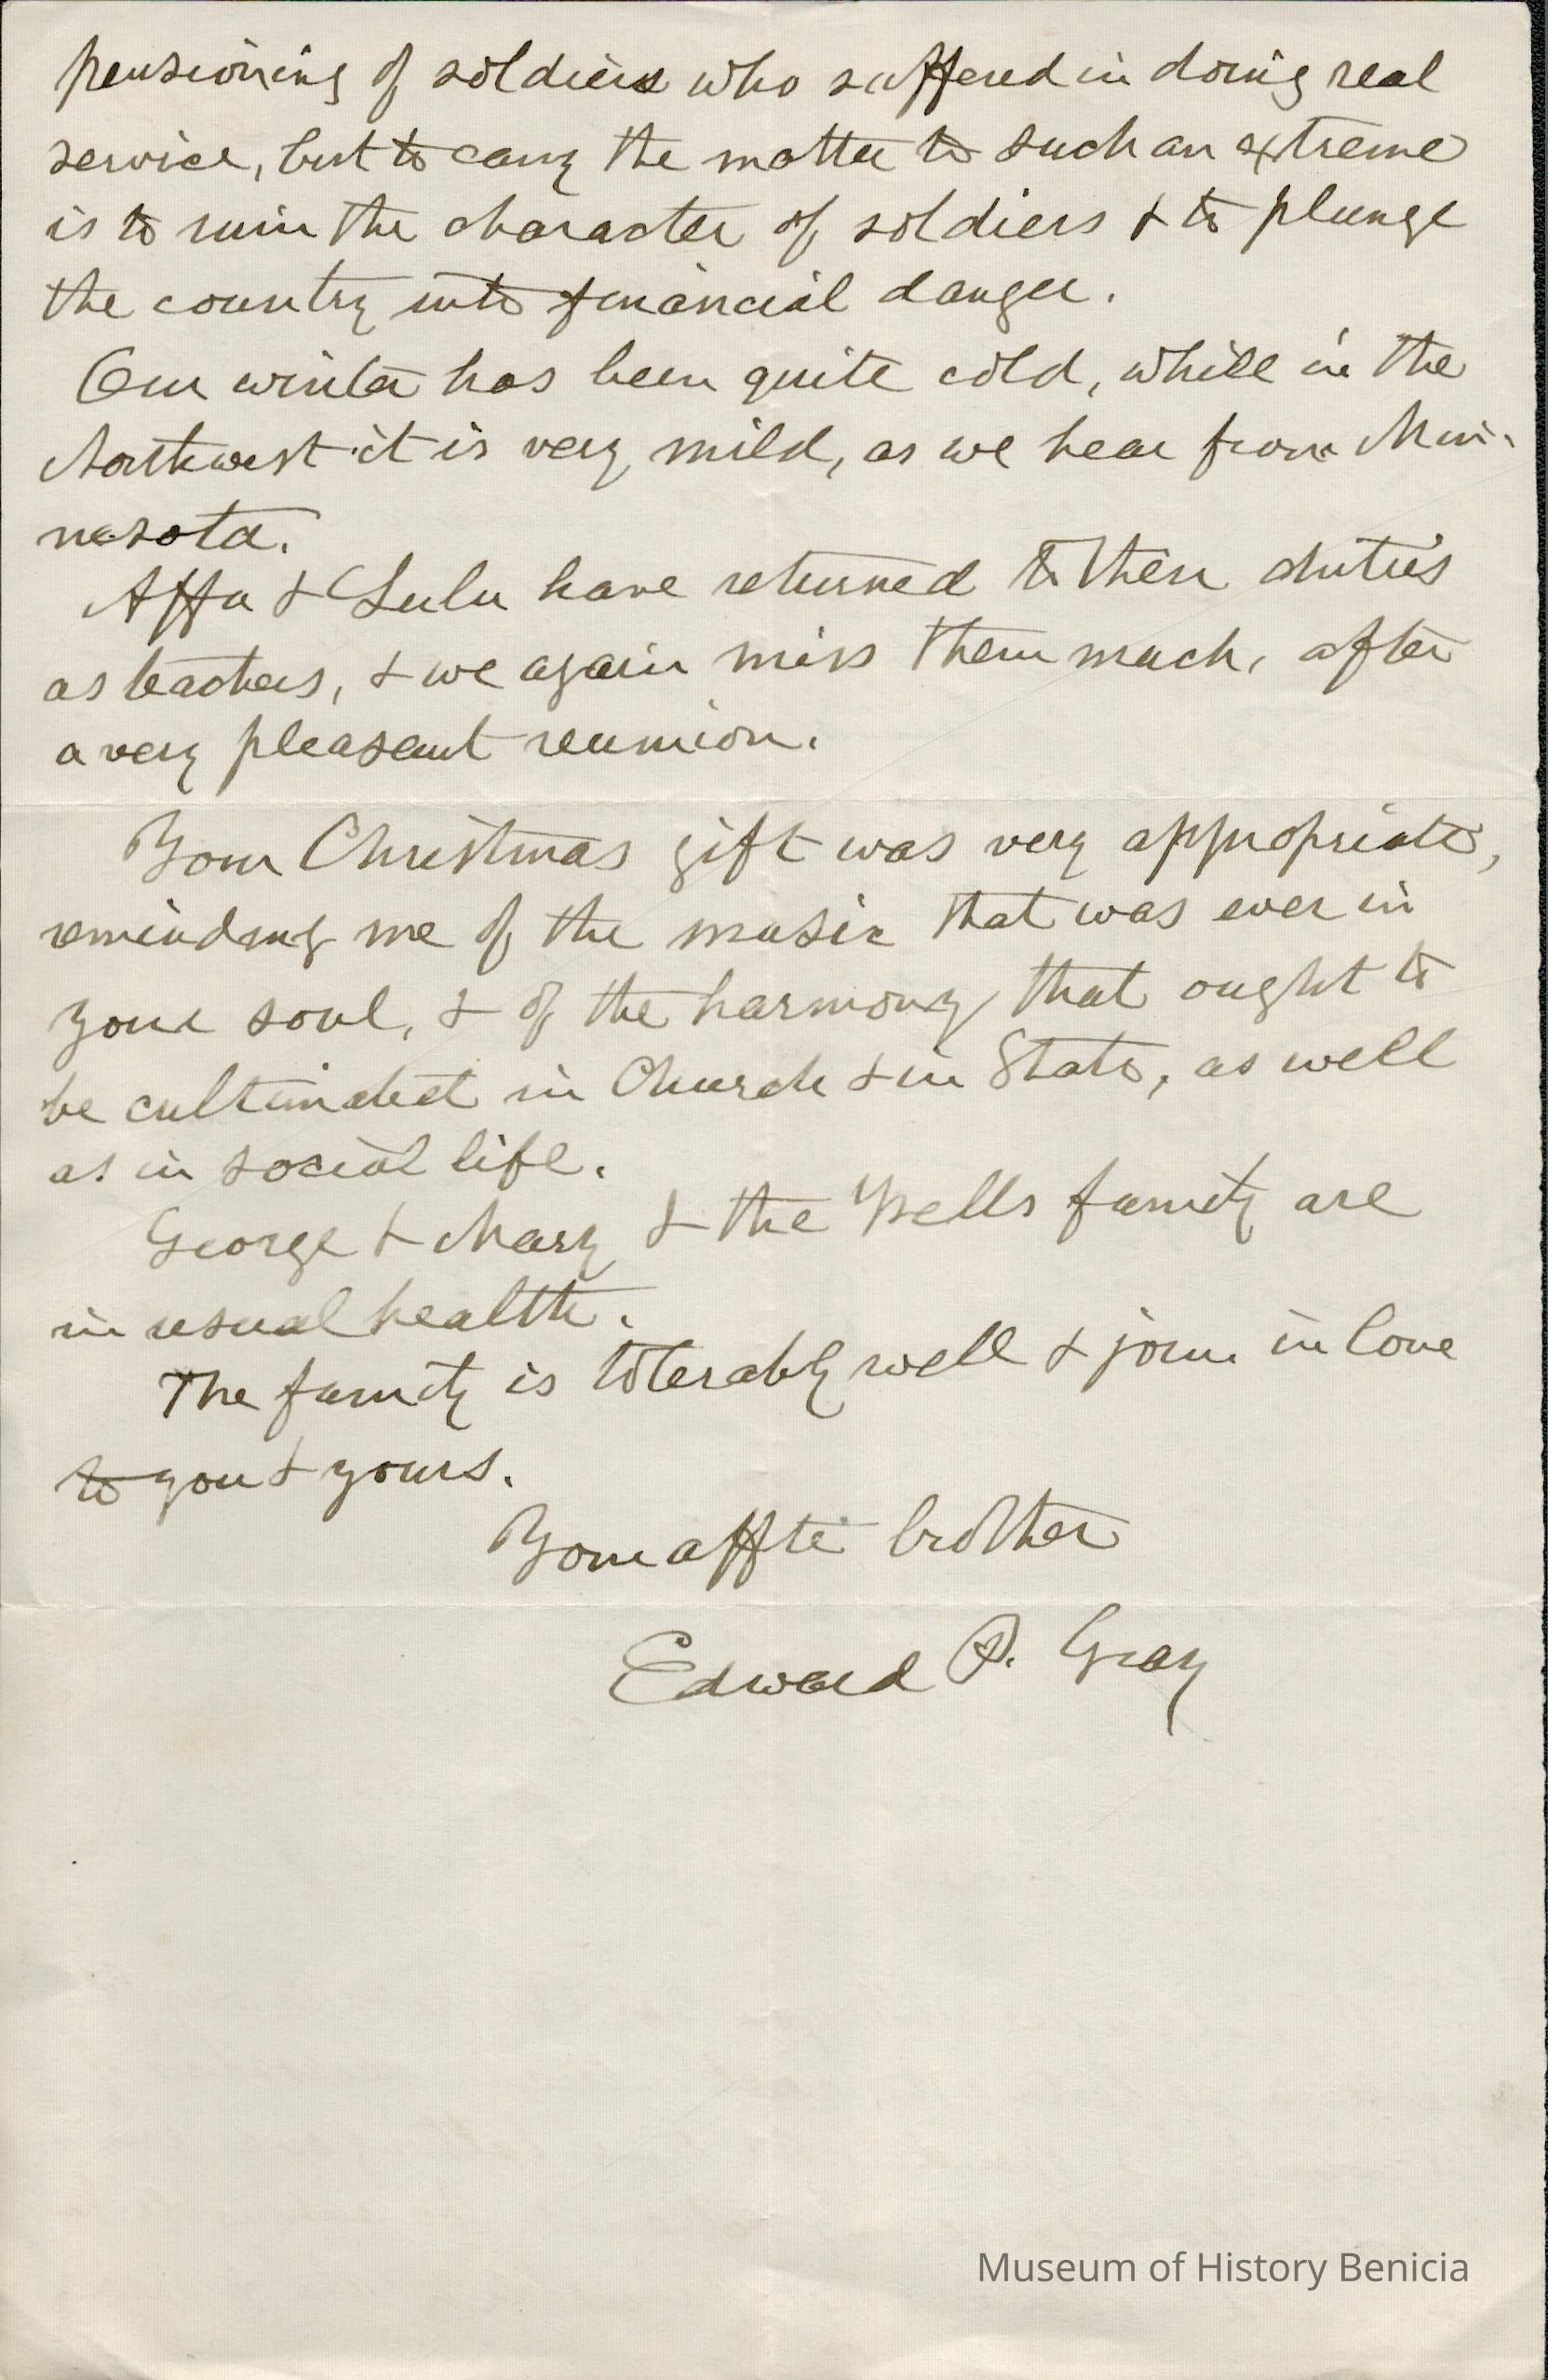 pensioning of soldiers who suffered in doing real
service, but to carry the matter to such an extreme
is to ruin the character of soldiers & to plunge
the country into financial danger.
Our winter has been quite cold, while in the
Northwest it is very mild, as we hear from Min-
nesota.
Affa & Lulu have returned to their duties
as teachers, & we again miss them much, after
a very pleasant reunion.
Your Christmas gift was very appropriate,
reminding me of the music that was ever in
your soul, & of the harmony that ought to
be cultivated in Church & in State, as well
as in social life.
George & Mary & the Wells family are
in usual health.
The family is tolerably well & join in love
to you & yours.
Your affte brother
Edward P. Gray
Museum of History Benicia